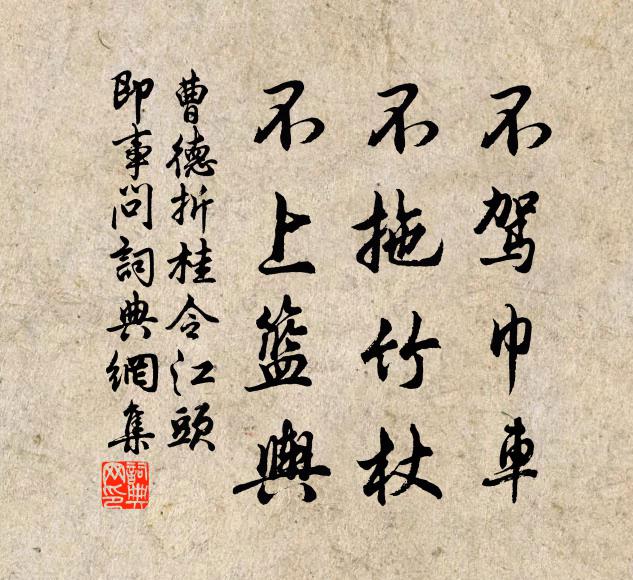 不駕巾車
不拖竹杖
不上籃輿
曹德折桂令江頭
即事問詞典網集
詞典
网印